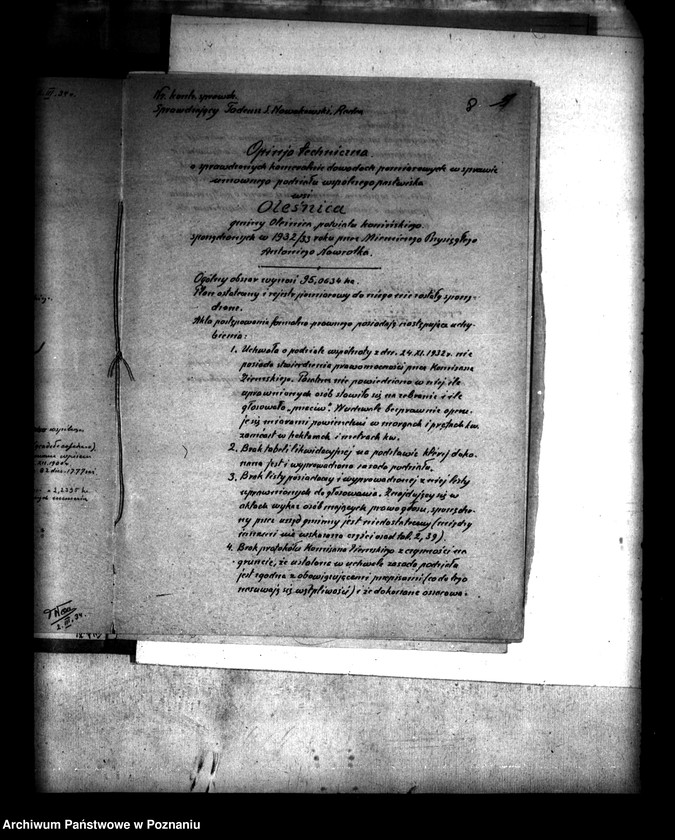 Nr. kontr. sprawdz.
Sprawdzający Tadeusz S. Nowakowski, Radca
8
Opinja techniczna
o sprawdzonych kameralnie dowodach pomiarowych w sprawie
umownego podziału wspólnego pastwiska
wsi
Oleśnica
gminy Oleśnica powiatu konińskiego.
sporządzonych w 1932/33 roku przez Mierniczego Przysięgłego
Antoniego Nawrotka.
Ogólny obszar wynosi 95,0634 ha.
Plan ostateczny i rejestr pomiarowy do niego nie zostały sporzą-
dzone.
Akta postępowania formalno-prawnego posiadają następujące uchy-
bienia:
1. Uchwała o podziale wspólnoty z dn. 24.XI.1932 r. nie
posiada stwierdzenia prawomocności przez Komisarza
Ziemskiego. Pozatem nie powiedziano w niej ile
uprawnionych osób stawiło się na zebranie i ile
głosowało „przeciw". W uchwale bezprawnie operu-
je się miarami powierzchni w morgach i prętach kw.
zamiast w hektarach i metrach kw.
2. Brak tabeli likwidacyjnej na podstawie której doko-
nana jest i wyprowadzona zasada podziału.
3. Brak listy posiadaczy i wyprowadzonej z niej listy
uprawnionych do głosowania. Znajdujący się w
aktach wykaz osób mających prawo głosu, sporządzo-
ny przez urząd gminny jest niedostateczny (między
innemi nie wskazano części osad tab. 2, 39).
4. Brak protokółu Komisarza Ziemskiego z czynności na
gruncie, że ustalona w uchwale zasada podziału
jest zgodna z obowiązującemi przepisami (co do tego
nasuwają się wątpliwości) i że dokonane oszacowa-
2.III.34.
Archiwum Państwowe w Poznaniu